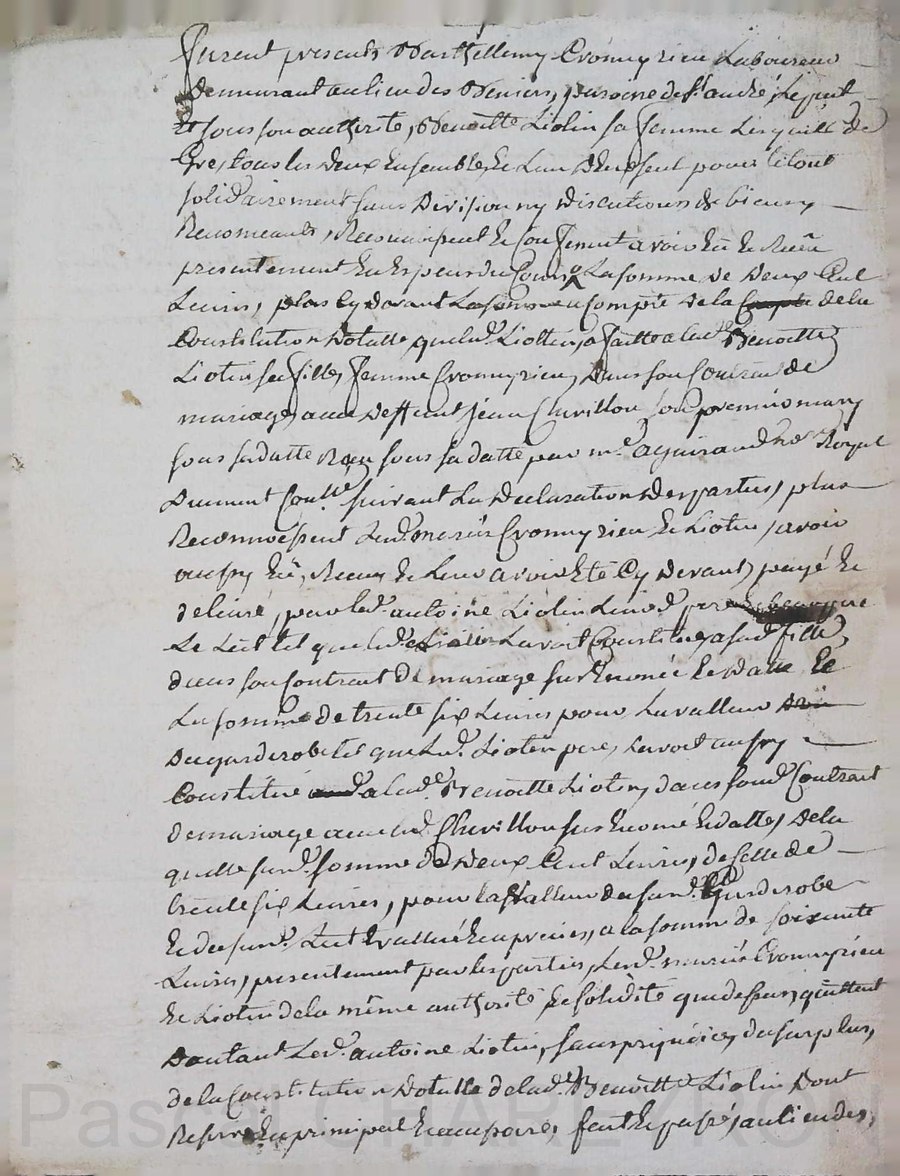 furent presents Barthellemy Cronnyrieu Laboureur
demeurant au lieu des paroisse de St andré Le puit
Et sous son authorité, Benoitte Liotin sa femme Lesquels de
Gre, tous les deux Ensemble, Et Lun Deux seul pour Le tout
solidairement sans Division ny discutions de biens
Renonceants, Reconnoissent Et Confessent avoir Eû Et Reçû
presentement En Espece du Cours La somme de Deux Cent
Livres, plus Cy devant acompte de la Compte de la
Constitution Dotalle que led. Liotin, a faitte a lad. Benoitte
Liotin sa fille, femme Cronnyrieu, Dans son Contrat de
mariage, avec Deffunt Jean Chavillon son premier mary
sous sa datte Reçu sous sa datte par me. nore Royal
Duement Conllé suivant La Declaration Des parties, plus
Reconnoissent Lesd. mariés Cronnyrieu Et Liotin, avoir
aussy Eû, Receu Et Leur avoir Eté Cy devant, payé Et
delivré, par led. antoine Liotin Leurd. pere
Le Lict tel que led. Liotin Lavoit Constitué, a sad. fille,
dans son Contrat De mariage surEnoncé Et Datté, Et
La somme de trente six Livres pour La valleur
Du garderobe tel que Led. Liotin pere, Lavoit aussy
Constitué a lad. Benoitte Liotin, dans sond. Contrait
De mariage avec led. Chavillon sus Enoncé Et datté, De la
quelle susd. somme de Deux Cent Livres, de celle de
trente six Livres, pour La valleur du susd. garderobe
Et du susd. Lict Evallué En apreciés, a la somme de soixante
Livres, presentement par les parties, Lesd. mariés Cronnyrieu
Et Liotin de la même authorité Et solidité que dessus, quittent
Dautant Led. antoine Liotin, sans prejudice, du surplus,
de la Constitution Dotalle de lad. Benoitte Liotin Dont
Reserve En principal Et accessoires, fait Et passé, au lieu des,
Pascal CHAREYRON